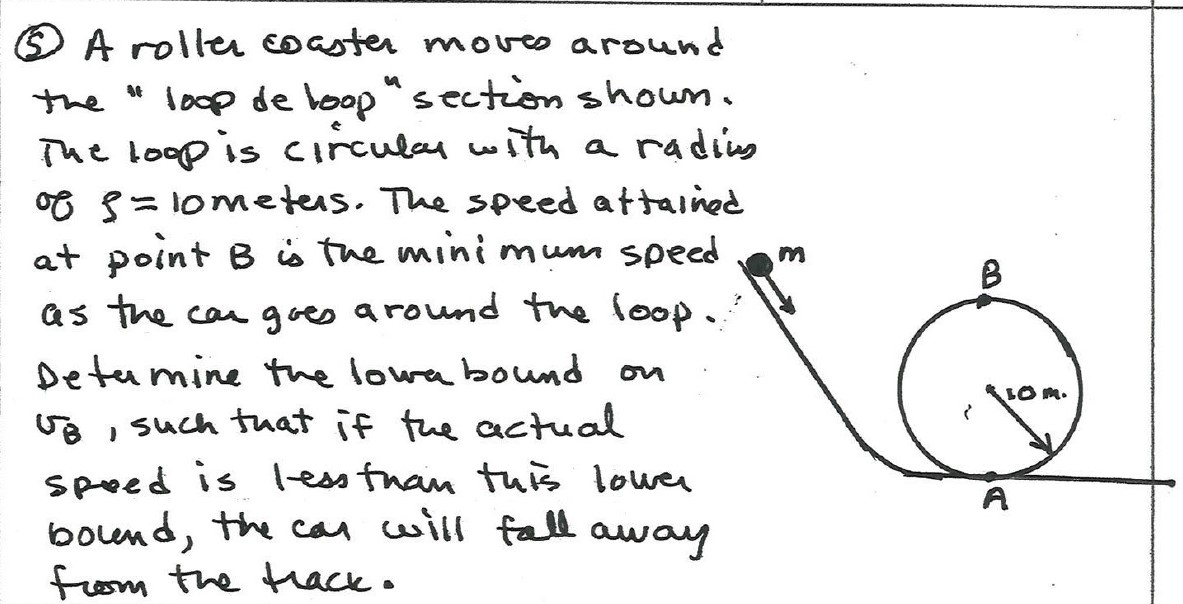 ⑤ A roller coaster moves around
the "loop de loop" section shown.
The loop is circular with a radius
of ρ = 10 meters. The speed attained
at point B is the minimum speed
as the car goes around the loop.
Determine the lower bound on
v_B, such that if the actual
speed is less than this lower
bound, the car will fall away
from the track.
m
B
10 m.
A